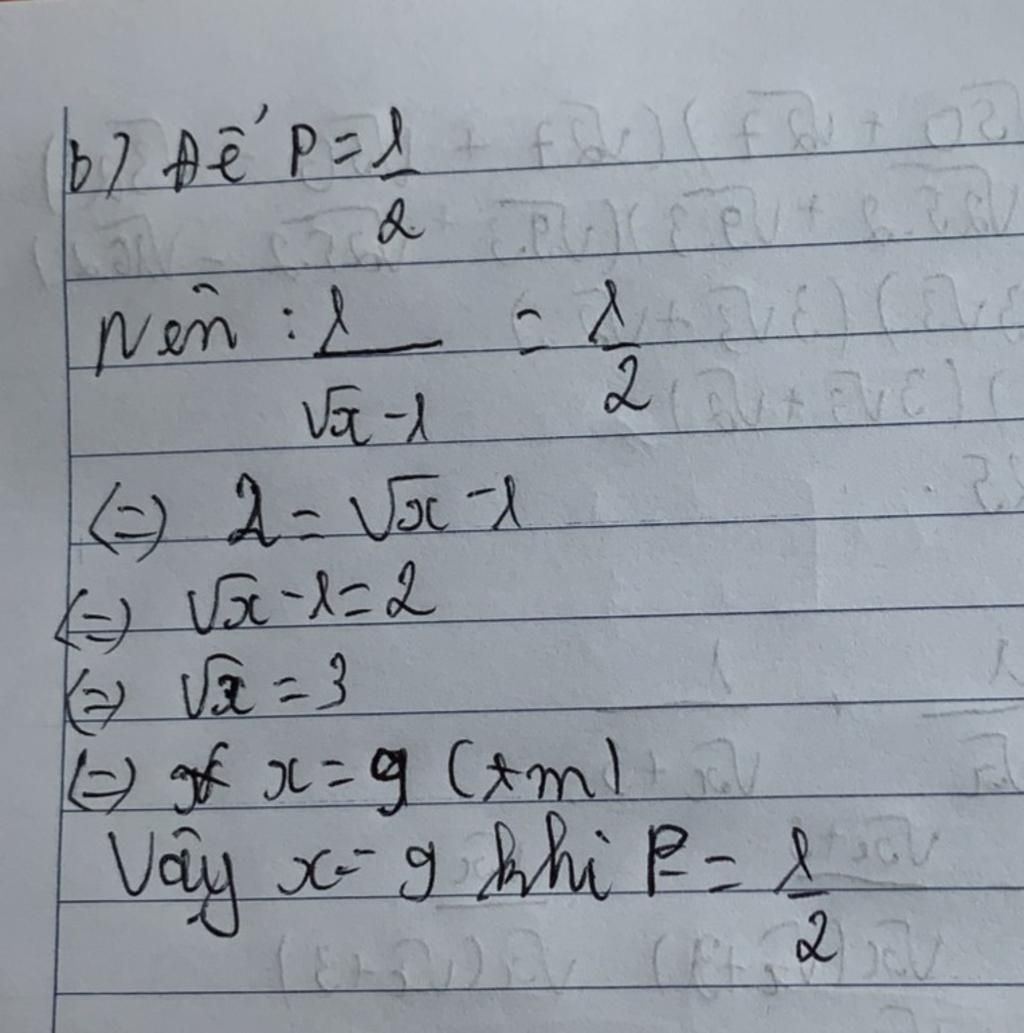 b) Để P = 1/2
Nên : 1/(√x - 1) = 1/2
(=) 2 = √x - 1
(=) √x - 1 = 2
(=) √x = 3
(=) x = 9 (tm)
Vậy x = 9 khi P = 1/2